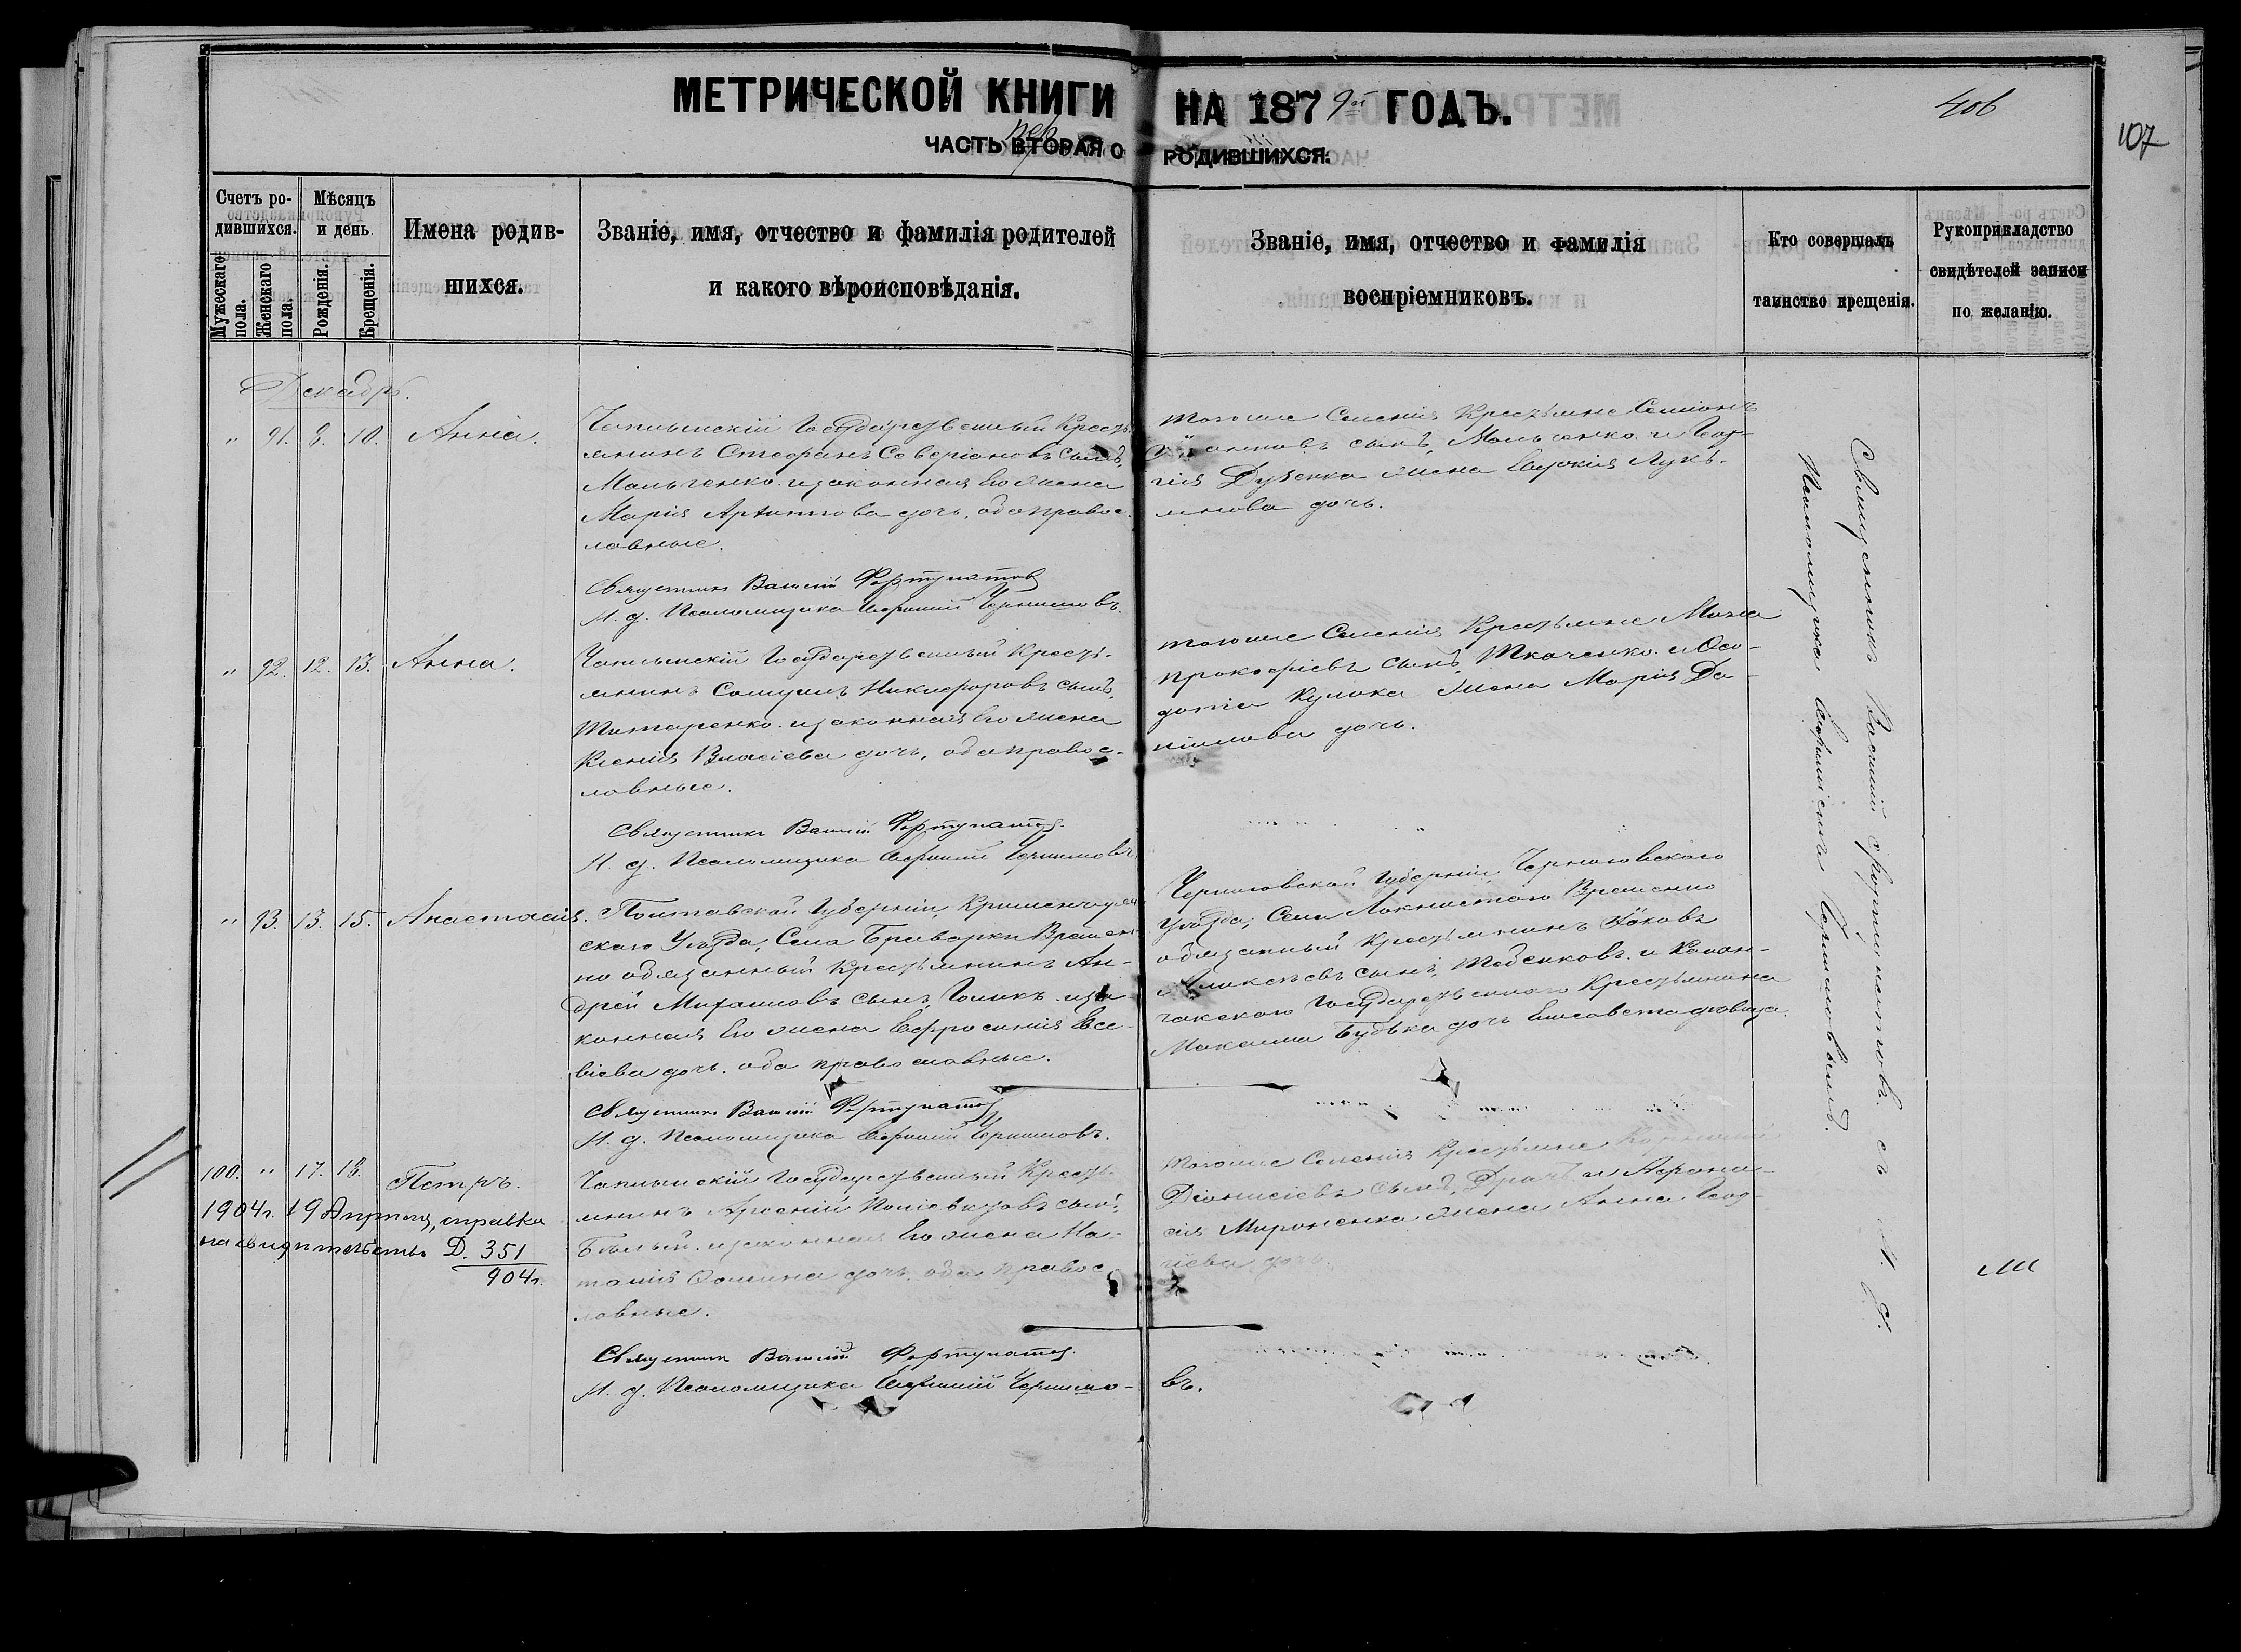 МЕТРИЧЕСКОЙ КНИГИ НА 1879й ГОДЪ.
406
107
ЧАСТЬ ВТОРАЯ О РОДИВШИХСЯ.
пер
Счетъ ро-
дившихся.
Мужескаго
пола.
Женскаго
пола.
Мѣсяцъ
и день
Рожденія.
Крещенія.
Имена родив-
шихся.
Званіе, имя, отчество и фамилія родителей
и какого вѣроисповѣданія.
Званіе, имя, отчество и фамилія
воспріемниковъ.
Кто совершалъ
таинство крещенія.
Рукоприкладство
свидѣтелей записи
по желанію.
Декабрь.
" 91. 8. 10. Анна.
Чаплынскій Государственный Кресть-
янинъ Стефанъ Северіановъ сынъ,
Мальченко. и законная Его жена
Марія Артимова дочь, оба правос-
лавные.
Священникъ Василій Фортунатовъ
И. д. Псаломщика Евфимій Чернишовъ.
тогоже Селенія Крестьяне Симіонъ
сынъ, Мальченко. и Геор-
гія Дузенка жена Евдокія Лукі-
янова дочь.
" 92. 12. 13. Анна.
Чаплынскій Государственный Кресть-
янинъ Самуилъ Никифоровъ сынъ,
Титаренко. и законная Его жена
Ксенія Власіева дочь, оба правос-
лавные.
Священникъ Василій Фортунатовъ.
И. д. Псаломщика Евфимій Чернишовъ.
тогоже Селенія Крестьяне
Прокофіевъ сынъ, Ткаченко. и Осо-
Кулика жена Марія Да-
ніилова дочь.
" 93. 13. 15. Анастасія.
Полтавской Губерніи, Кременчуг-
скаго Уѣзда, Села Броварки Времен-
но обязанный Крестьянинъ Ан-
дрей Михаиловъ сынъ, и за-
конная Его жена Евфросинія Евсе-
віева дочь. оба православные.
Священникъ Василій Фортунатовъ
И. д. Псаломщика Евфимій Чернишовъ.
Черниговской Губерніи, Черниговскаго
Уѣзда, Села Локнистаго Временно
обязанный Крестьянинъ Іаковъ
Алексѣевъ сынъ, и Калан-
чакскаго Государственнаго Крестьянина
Максима Будька дочь Елисавета дѣвица.
100. " 17. 18. Петръ.
1904г. 19 Апрѣля, справка
на свидѣтельство Д. 351
904г.
Чаплынскій Государственный Кресть-
янинъ Арсеній Поліевктовъ сынъ,
Бѣлый. и законная Его жена На-
талія Фомина дочь, оба правос-
лавные.
Священникъ Василій Фортунатовъ.
И. д. Псаломщика Евфимій Чернишо-
въ.
тогоже Селенія Крестьяне
Діонисіевъ сынъ, Драчъ и Афана-
сія Мироненка жена Анна Геор-
гіева дочь.
Священникъ Василій Фортунатовъ. съ И. д.
Псаломщика Евфиміемъ Чернишовымъ.